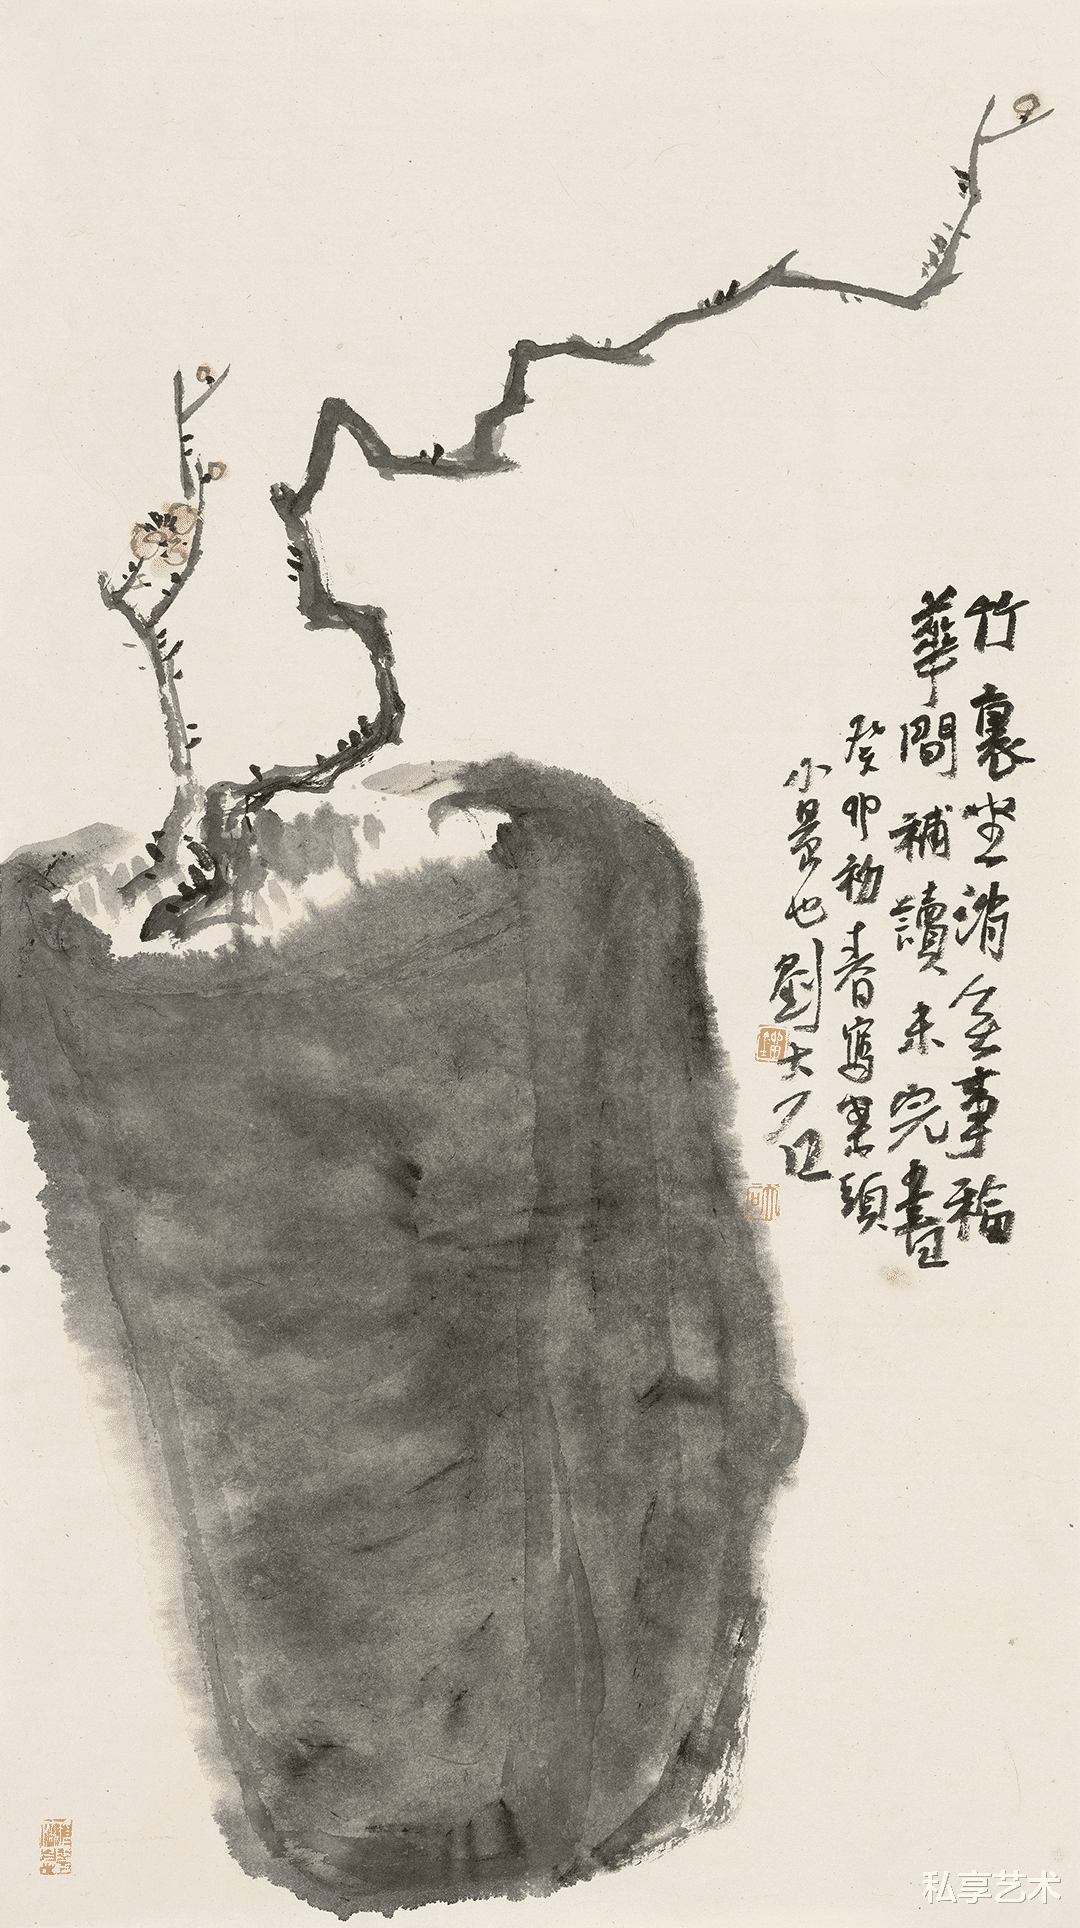 竹裏坐消無事福
華間補讀未完書
癸卯初春寫案頭
小景也劉大石
私享艺术